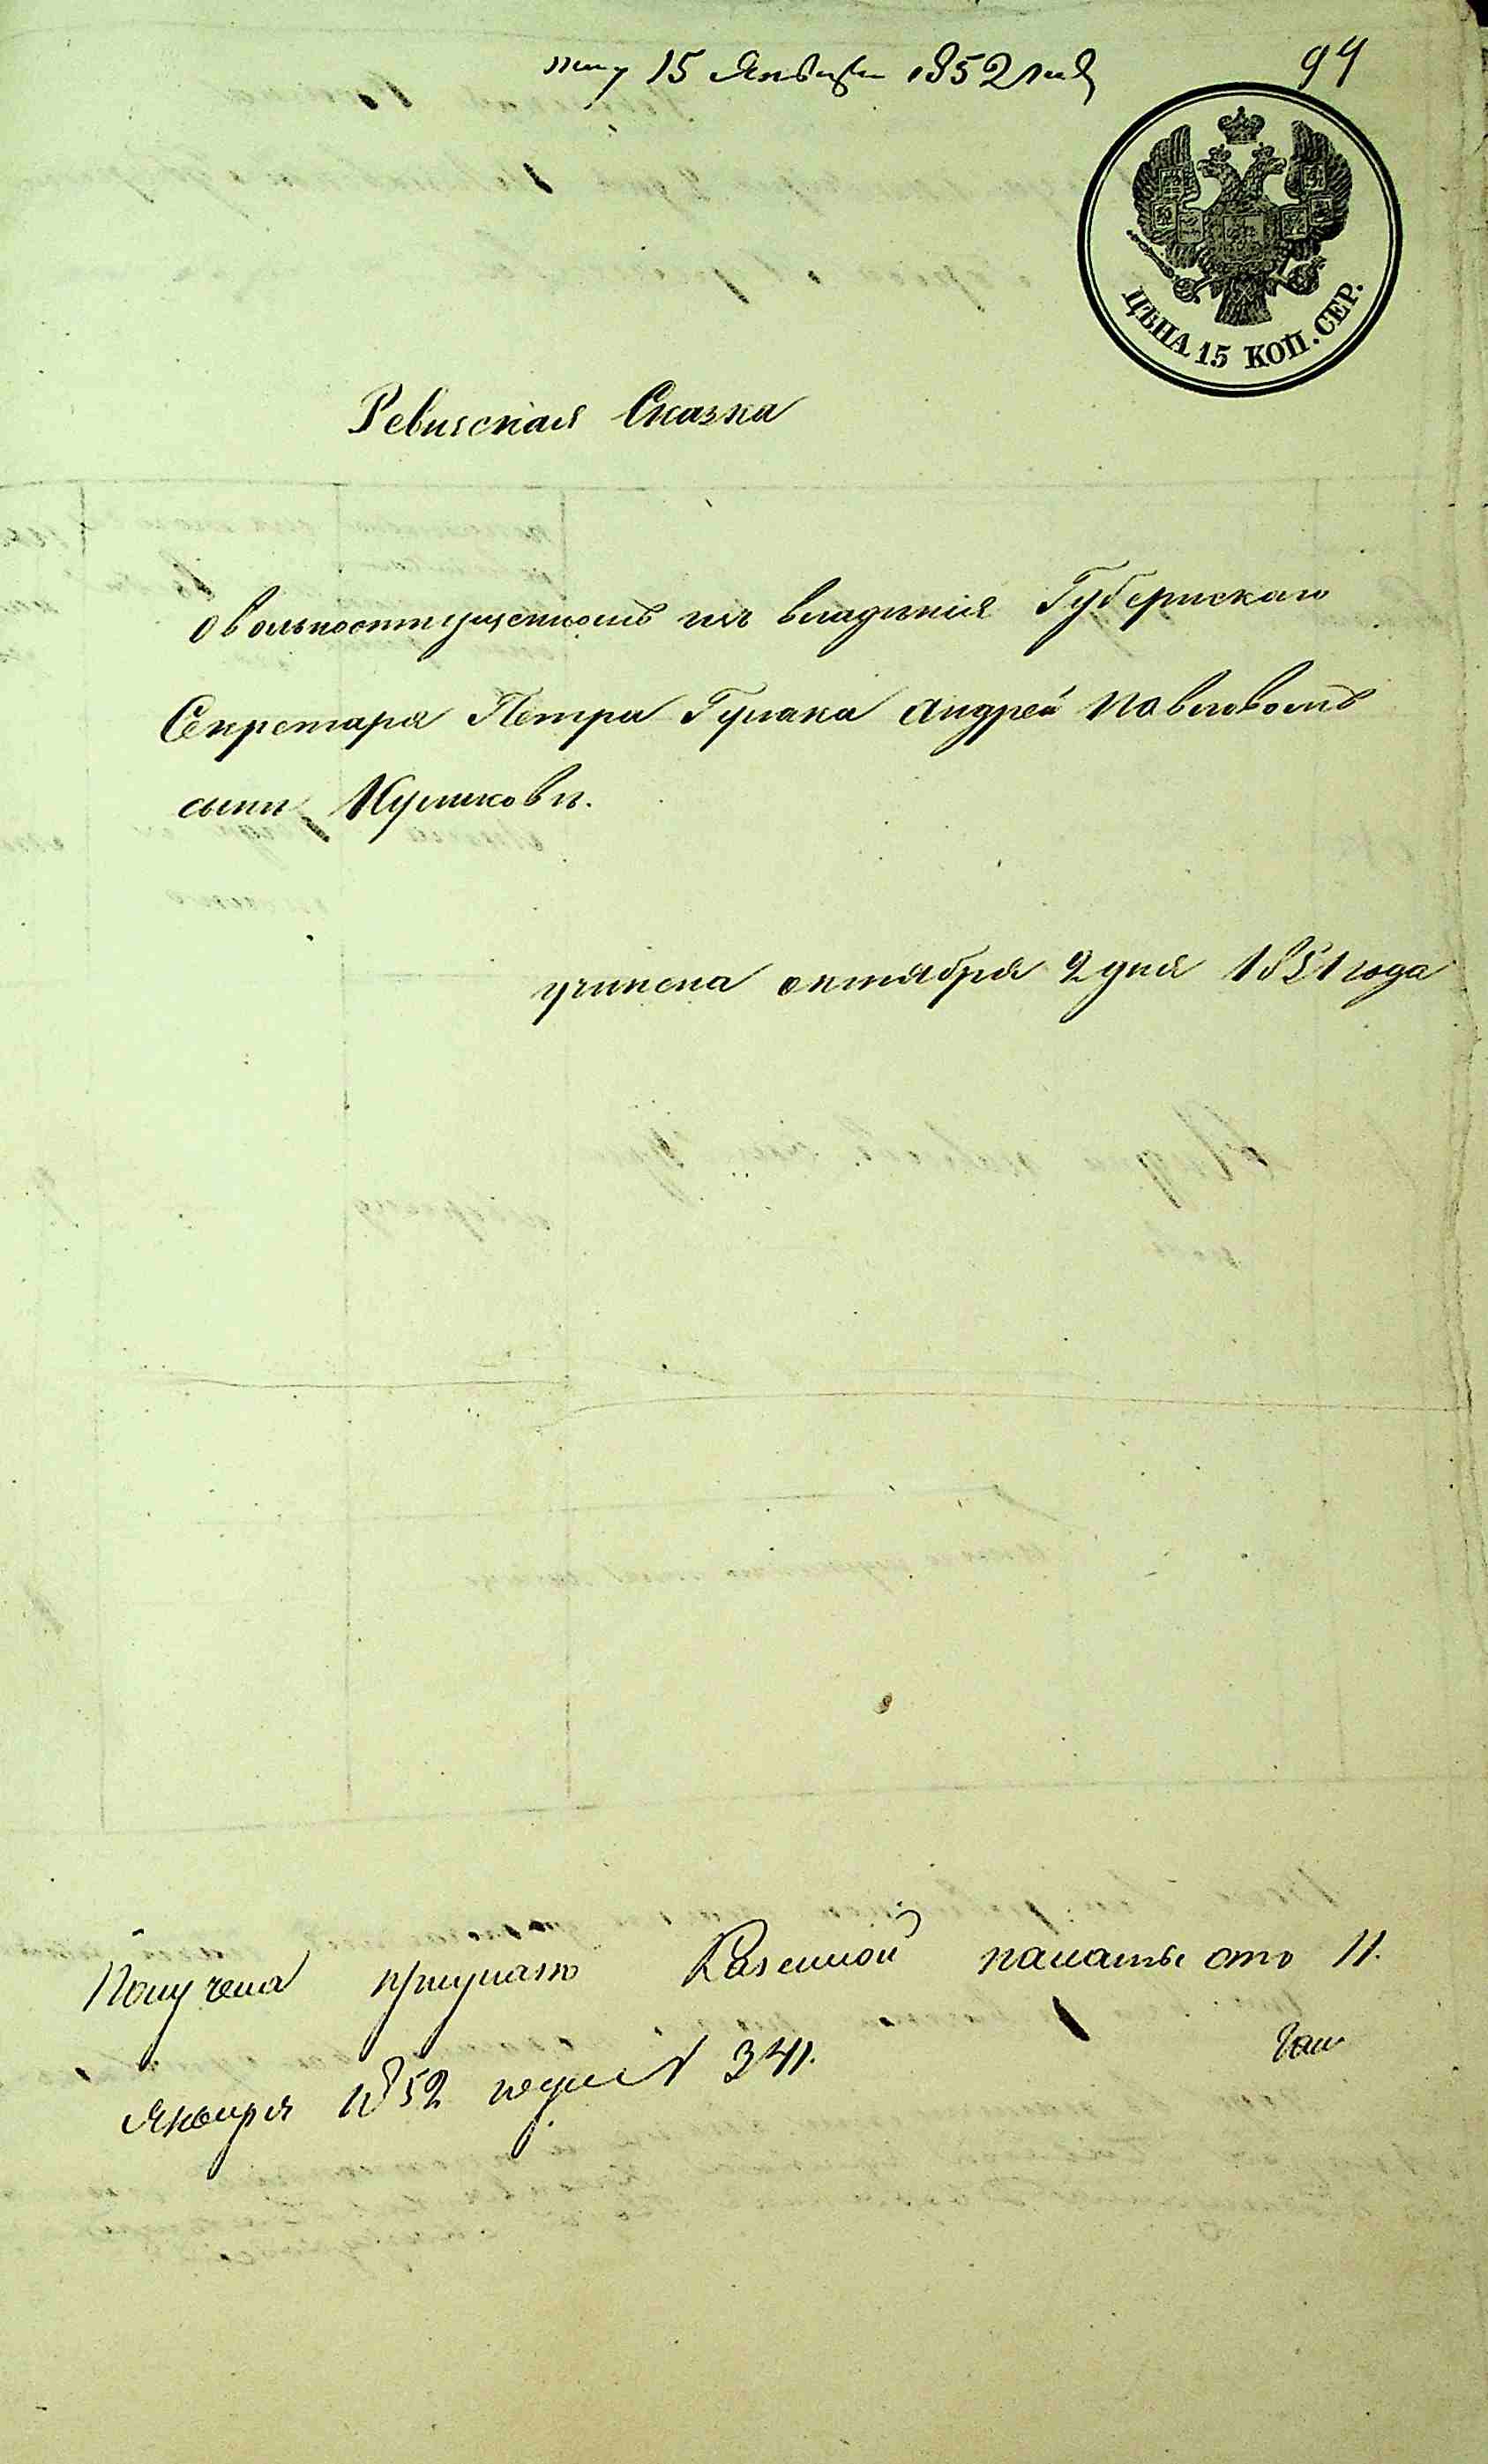 15 Января 1852 года
94
ЦѢНА 15 КОП. СЕР.
Ревизская Сказка
о вольноотпущенномъ изъ владѣнія Губернскаго
Секретаря Петра Гулака Андреѣ Павловомъ
сынѣ Куликовѣ.
учинена октября 2 дня 1851 года
Получена при указѣ Казенной палаты отъ 11.
Января 1852 года N 341.